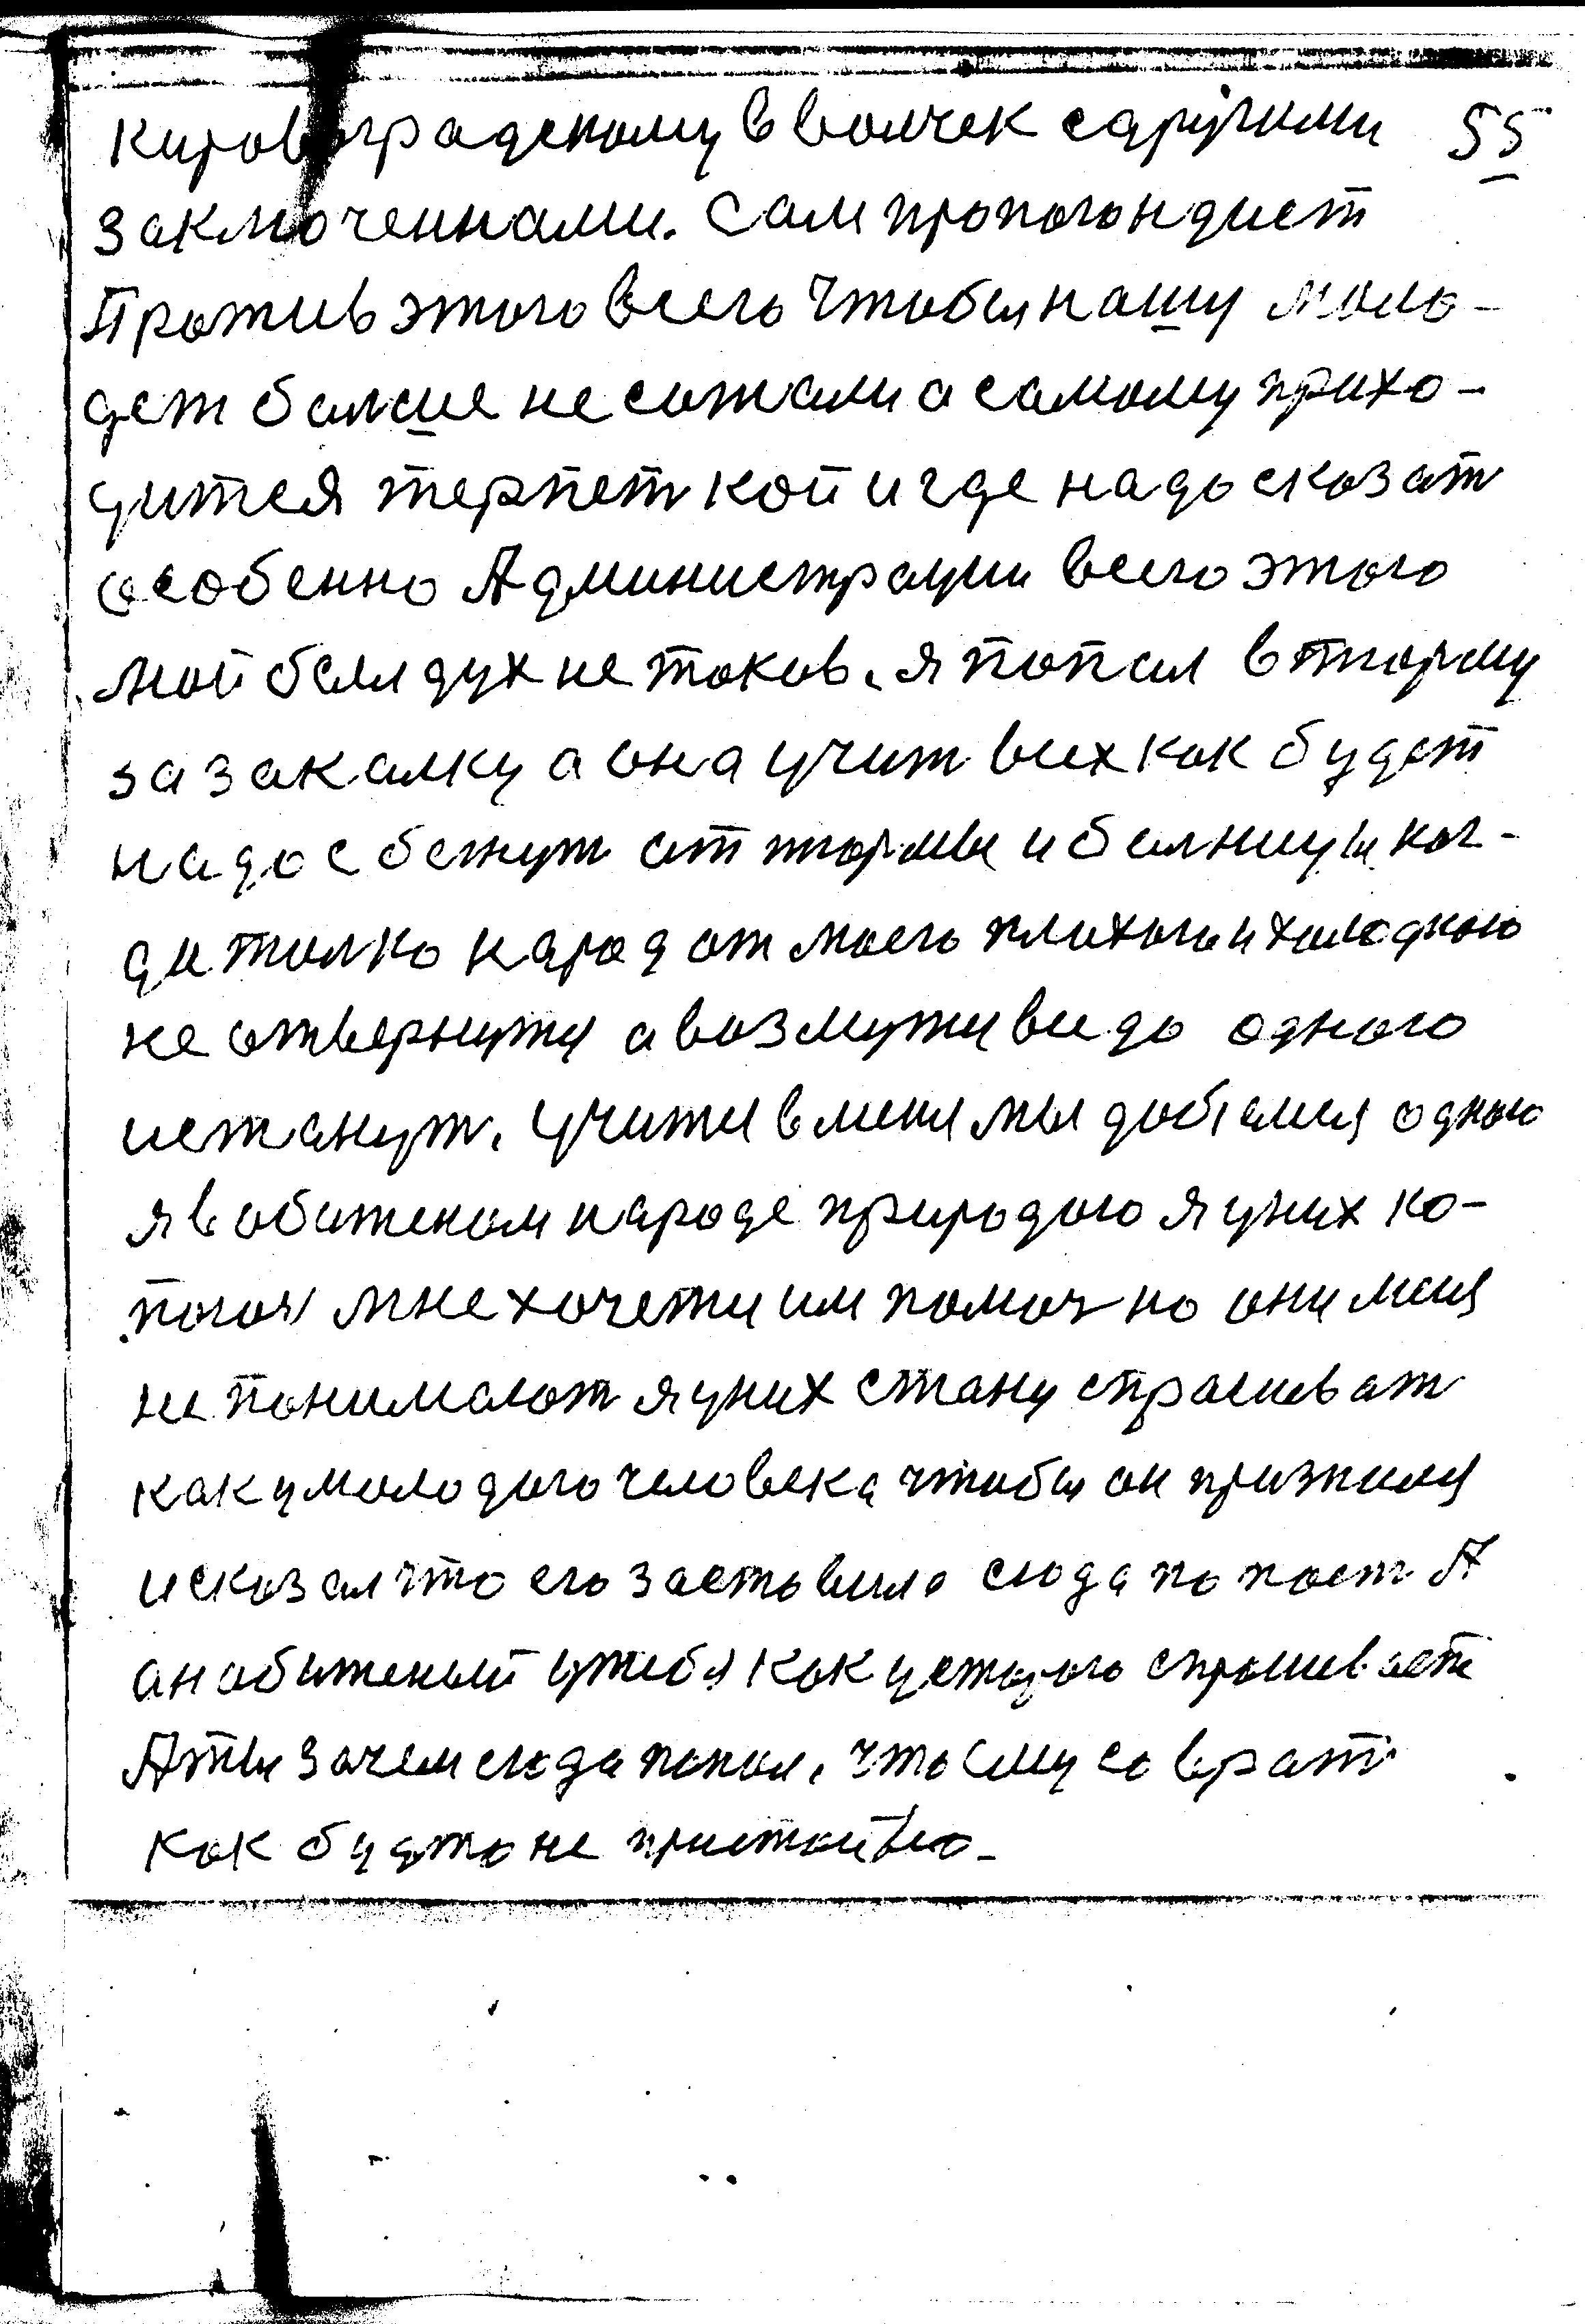 кировоградскому в волчек сдругими 55
заключеннами. Сам пропогондист
Против этого всего чтобы нашу моло-
дет балше не сожали а самому прихо-
дится терпет кой и где надо сказат
особенно Администрации всего этого
мой был дух не таков. я попал в тюрму
за закалку а она учит всех как будет
надо сбежут от тюрмы и балницы ког-
да толко народ от моего плихого и холодного
не отвернутя а возмутя все до одного
истанут. учитя в меня мы добъемся одного
я в обиженом народе природою я у них ко-
погоя мне хочетя им помоч но они меня
не понимают я у них стану спрашиват
как у молодого человека чтобы он признался
и сказал что его заставило сюда попаст А
он обиженый у тебя как у старого спрашивает
А ты зачем сюда попал. что ему соврат
как будто не пристойно-